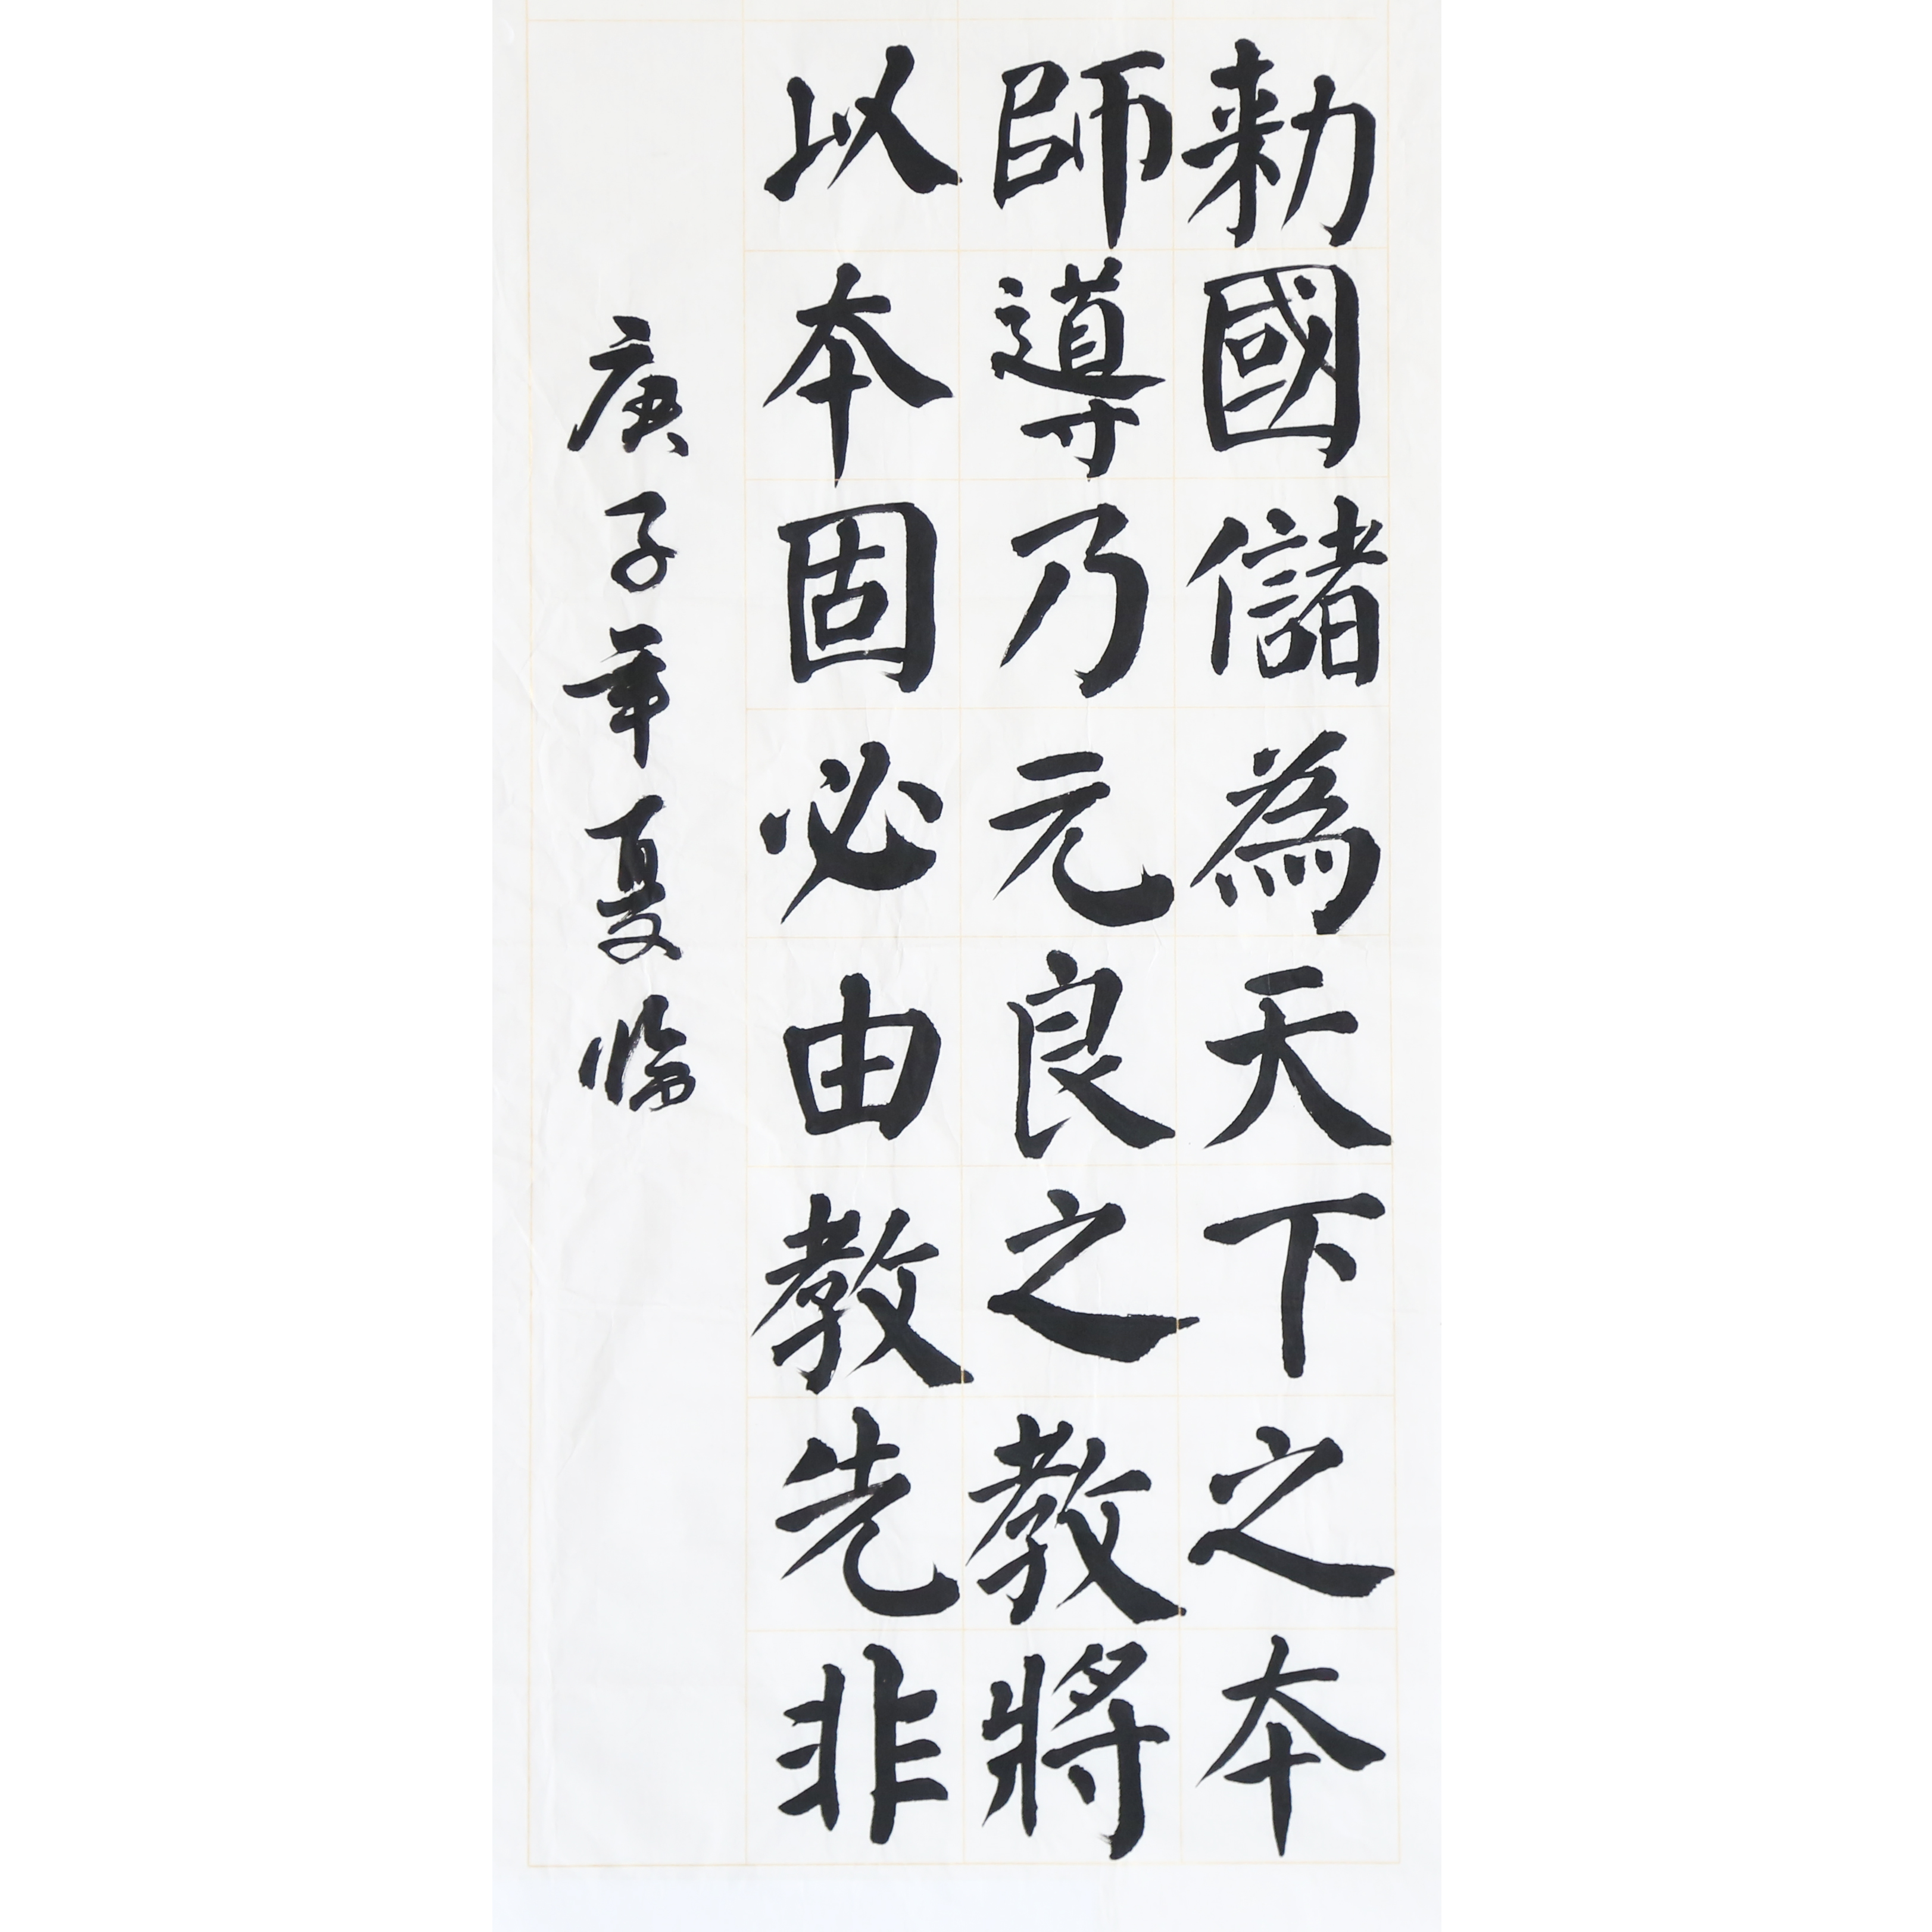 勑國儲為天下之本
師導乃元良之教將
以本固必由教先非
庚子年夏臨